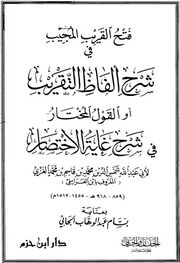 فَتْحُ القَرِيبِ المُجِيْب
في
شَرْحِ أَلْفَاظِ التَّقْرِيْبِ
أو القَوْلِ المُخْتَار
في شَرْحِ غَايَةِ الاخْتِصَار
لأبي عبد الله شمس الدين محمد بن قاسم بن محمد الغزي
(٨٥٩ - ٩١٨ هـ - ١٤٥٥ - ١٥١٢م)
بعناية
بسام عبد الوهاب الجابي
دار ابن حزم